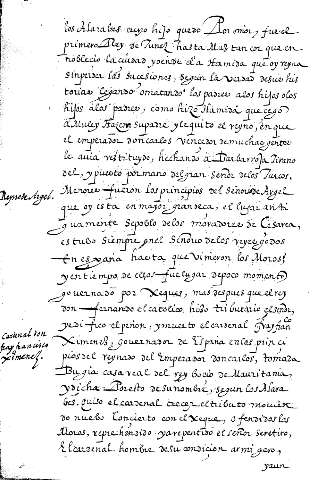 los Alarabes cuyo hijo quedo Por señor, y fue el
primero Rey de Tunez hasta Mas tan cor que en
noblecio la ciudad ydende ella Hamida que oy reyna
sinpida las sucesiones, segun la verdad desus his
torias cegando omatando los padres alos hijos olos
hijos alos padres, como hizo Hamida que cego
à Muley Hacem su padre y le quito el reyno, en que
el emperador don carlos vencedor de muchas gentes
le avia restituydo, hechando à Barbarroja tirano
del, y puesto por mano del gran señor delos Turcos.
Menores fueron los principios del Señorio de Argel
que oy esta en mayor grandeça, el lugar anti
guamente se poblo delos moradores de Cesarea,
estubo siempre en el señorio delos reyes godos
En españa hasta que vinieron los Moros,
y en tiempo de ellos fue lugar de poco momento
governado por Xeques, mas despues que el rey
don Fernando el catolico, hiço tributario el señor,
y edifico el peñon, y muerto el cardenal fray fran.co
Ximenez, governador de España en los princi
pios del reynado del Emperador don carlos, tomada
Bugia casa real del rey Bocio de Mauritania,
y dicha Por esto de su nombre, segun los Alara
bes. quiso el cardenal crecer el tributo movien
do nuevo Concierto con el Xeque, ofendidos los
Moros, reprehendido y arrepentido el señor se retiro,
El cardenal hombre de su condicion armigero,
y aun
Reyno de Argel.
Cardenal don
fray francisco
Ximenez.